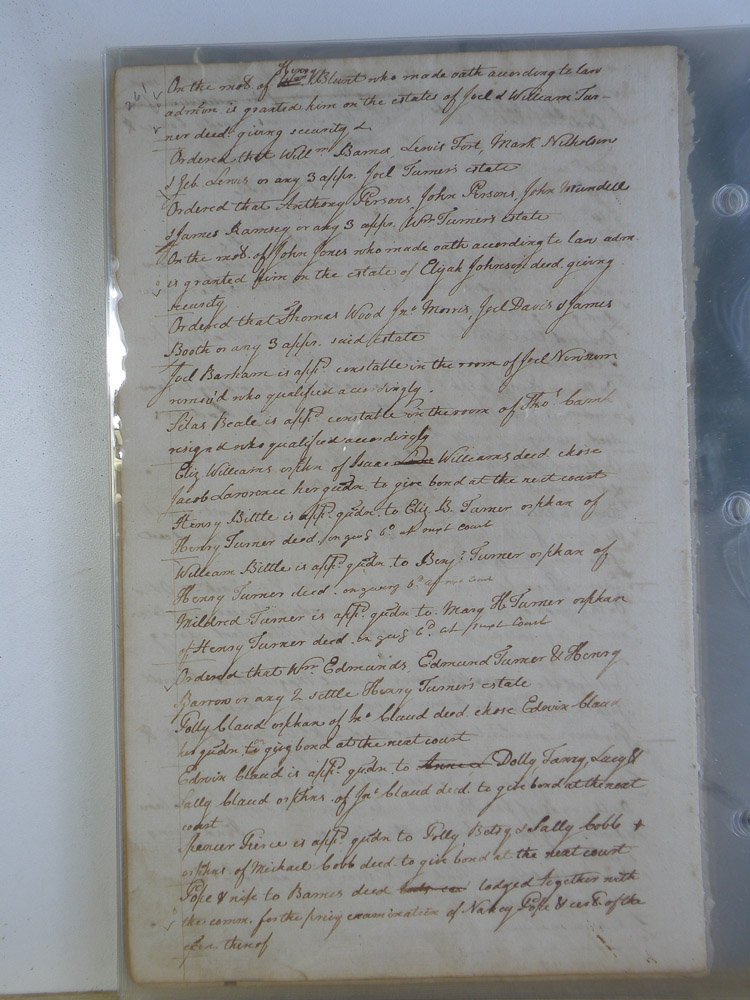 On the mo? of Henry Blunt who made oath according to law
adm'on is granted him on the estates of Joel & William Tur-
ner deed. giving security &
Ordered that Will'm Barnes, Lewis Fort, Mark Nicholson
& Jeb. Lewis or any 3 appr. Joel Turner's estate
Ordered that Anthony Persons, John Persons, John Mundell
& James Ramsey or any 3 appr. Wm Turner's Estate
On the mo?. of John Jones who made oath according to law adm.
is granted him on the estate of Elijah Johnson deed. giving
security
Ordered that Thomas Wood Jno. Morris, Joel Davis & James
Booth or any 3 appr. said estate
Joel Barham is app'd constable in the room of Joel Newsum
remov'd who qualified accordingly.
Silas Beale is app'd constable in the room of Tho's
resign'd who qualified accordingly
Eliz Williams orphn of Isaac Williams deed chose
Jacob Lawrence her gudn. to give bond at the next court
Henry Bittle is app'd. gudn to Eliz. B. Turner orphan of
Henry Turner deed. on givg bd. at next court
William Bittle is app'd. gudn. to Benj'n Turner orphan of
Henry Turner deed. on giving bd. at next court
Mildred Turner is app'd. gudn to Mary H Turner orphan
of Henry Turner deed. on givg bd. at next court
Ordered that Wm. Edmunds, Edmund Turner & Henry
Barrow or any 2 settle Henry Turner's estate
Polly Claud orphan of Jno Claud deed chose Edwin Claud
her gudn. to give bond at the next court
Edwin Claud is app'd. gudn to Dolly Lucy &
Sally Claud orphns. of Jno. Claud deed. to give bond at the next
court
Spencer Pierce is app'd gudn to Polly Betsy & Sally Cobb +
orphns of Michael Cobb deed. to give bond at the next court
Pope & wife to Barnes deed lodged together with
the comm. for the privy examination of Nancy Pope & cert. of the
exn. thereof